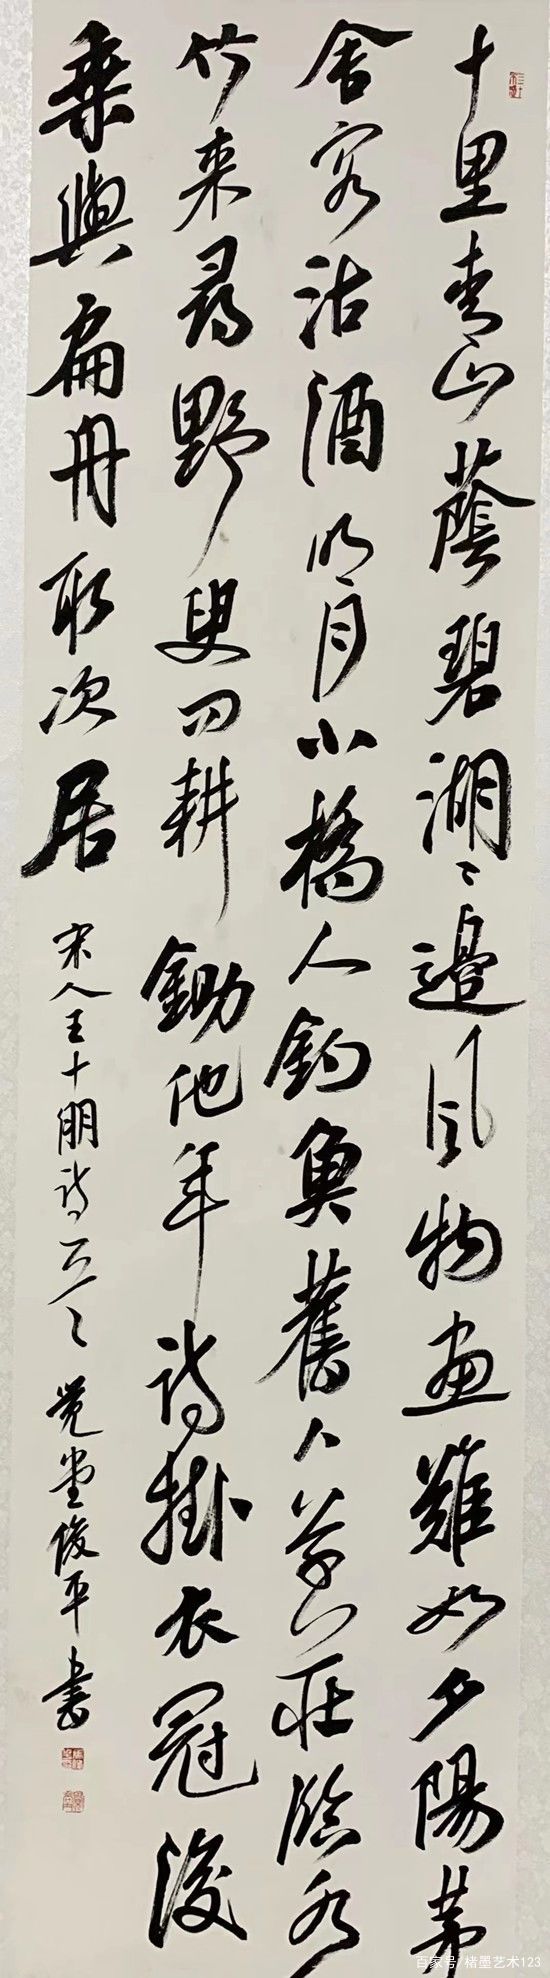 十里青山蔭碧湖〻邊風物畫難如夕陽茅
舍客沽酒明月小橋人釣魚舊卜草庄臨水
竹来尋野叟問耕鋤他年待掛衣冠後
乘興扁舟取次居 宋人王十朋詩一首 覺堂俊平書
百家号/楮墨艺术123